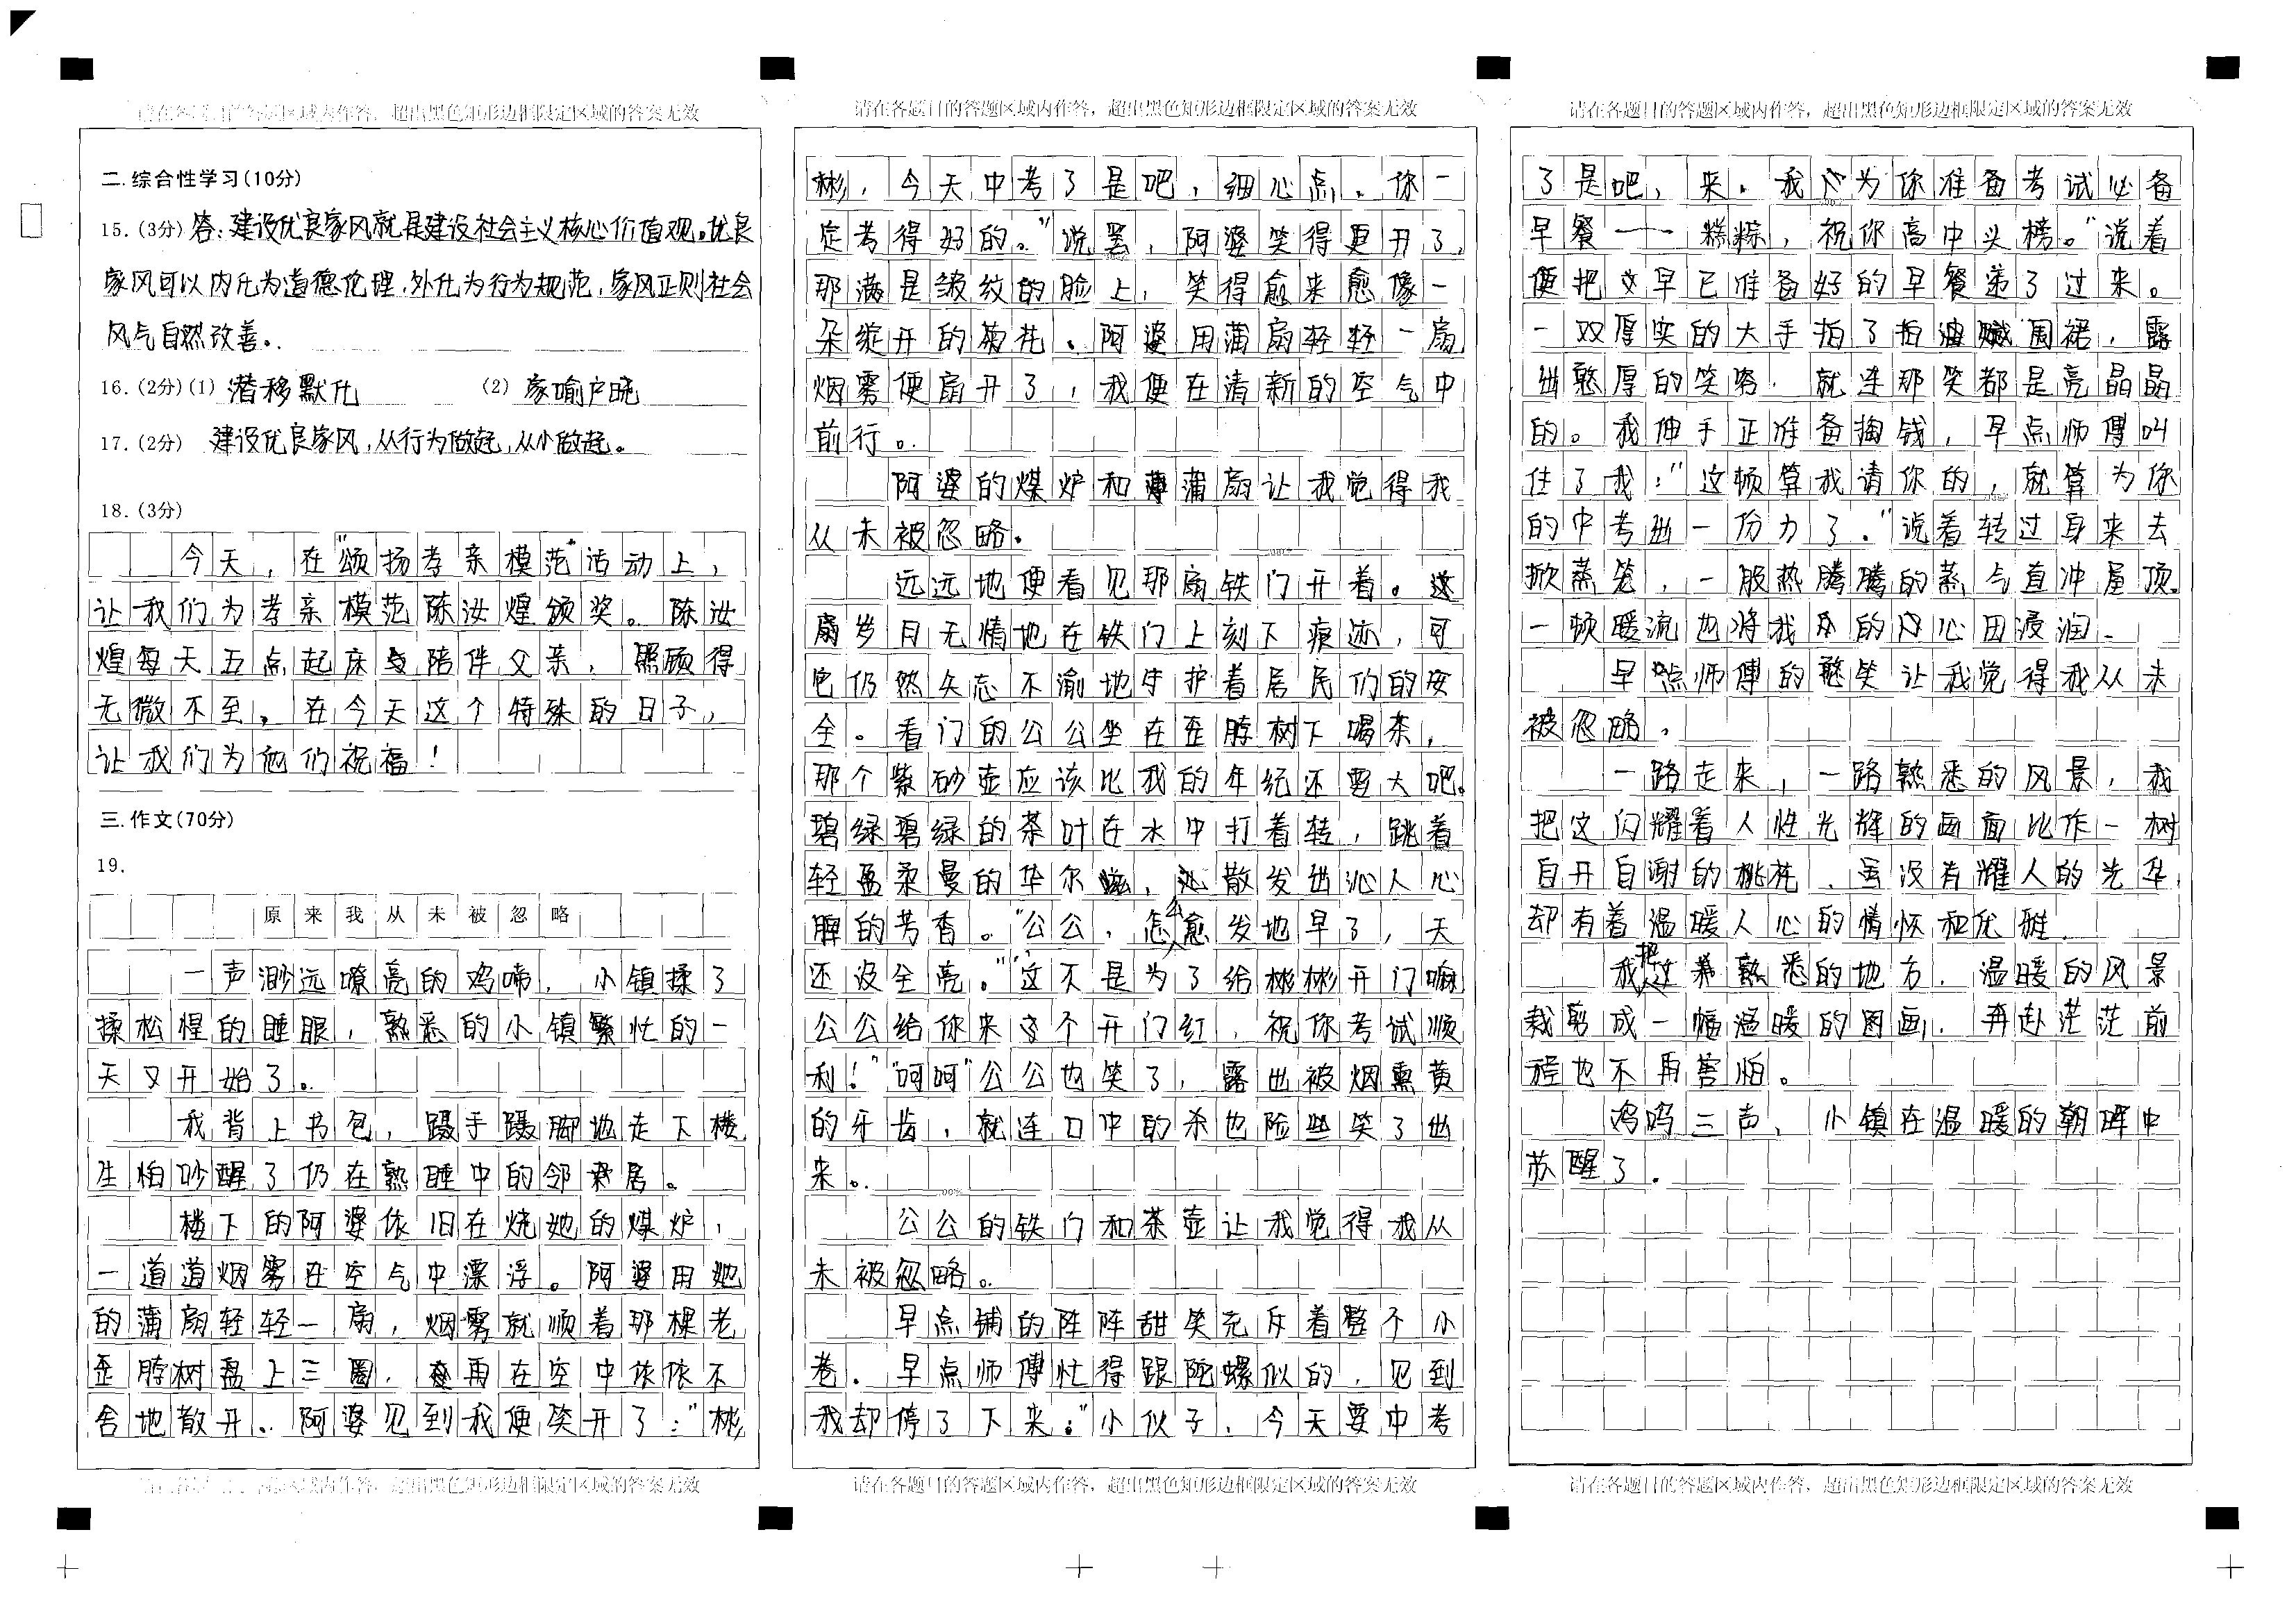 请在各题目的答题区域内作答，超出黑色矩形边框限定区域的答案无效
二.综合性学习(10分)
15.(3分) 答:建设优良家风就是建设社会主义核心价值观。优良
家风可以内化为道德伦理,外化为行为规范,家风正则社会
风气自然改善。
16.(2分)(1) 潜移默化 (2) 家喻户晓
17.(2分) 建设优良家风,从行为做起,从小做起。
18.(3分)
今天，在"颂扬孝亲模范"活动上，
让我们为孝亲模范陈汝煌颁奖。陈汝
煌每天五点起床陪伴父亲，照顾得
无微不至。在今天这个特殊的日子，
让我们为他们祝福！
三.作文(70分)
19.
原来我从未被忽略
一声渺远嘹亮的鸡啼，小镇揉了
揉松惺的睡眼，熟悉的小镇繁忙的一
天又开始了。
我背上书包，蹑手蹑脚地走下楼
生怕吵醒了仍在熟睡中的邻居。
楼下的阿婆依旧在烧她的煤炉，
一道道烟雾在空气中漂浮。阿婆用她
的蒲扇轻轻一扇，烟雾就顺着那棵老
歪脖树盘上三圈，再在空中依依不
舍地散开。阿婆见到我便笑开了："彬
请在各题目的答题区域内作答，超出黑色矩形边框限定区域的答案无效
请在各题目的答题区域内作答，超出黑色矩形边框限定区域的答案无效
彬，今天中考了是吧，细心点。你一
定考得好的。"说罢，阿婆笑得更开了，
那满是皱纹的脸上，笑得愈来愈像一
朵绽开的菊花。阿婆用蒲扇轻轻一扇
烟雾便扇开了，我便在清新的空气中
前行。
阿婆的煤炉和蒲扇让我觉得我
从未被忽略。
远远地便看见那扇铁门开着。
岁月无情地在铁门上刻下痕迹，可
它仍然矢志不渝地守护着居民们的安
全。看门的公公坐在歪脖树下喝茶，
那个紫砂壶应该比我的年纪还要大吧。
碧绿碧绿的茶叶在水中打着转，跳着
轻盈柔曼的华尔兹，散发出沁人心
脾的芳香。"公公，怎么愈发地早了，天
还没全亮。""这不是为了给彬彬开门嘛
公公给你来个开门红，祝你考试顺
利！""呵呵"公公也笑了，露出被烟熏黄
的牙齿，就连口中的茶也险些笑了出
来。
公公的铁门和茶壶让我觉得我从
未被忽略。
早点铺的阵阵甜笑充斥着整个小
巷。早点师傅忙得跟陀螺似的，见到
我却停了下来："小伙子，今天要中考
请在各题目的答题区域内作答，超出黑色矩形边框限定区域的答案无效
请在各题目的答题区域内作答，超出黑色矩形边框限定区域的答案无效
了是吧，来。我为你准备考试必备
早餐——糕粽，祝你高中头榜。"说着
便把早已准备好的早餐递了过来。
一双厚实的大手拍了拍油腻围裙，露
出憨厚的笑容，就连那笑都是亮晶晶
的。我伸手正准备掏钱，早点师傅叫
住了我："这顿算我请你的，就算为你
的中考出一份力了。"说着转过身来去
掀蒸笼，一股热腾腾的蒸气直冲屋顶。
一顿暖流也将我的心田浸润。
早点师傅的憨笑让我觉得我从未
被忽略。
一路走来，一路熟悉的风景，我
把这闪耀着人性光辉的画面比作一树
自开自谢的桃花，虽没有耀人的光华，
却有着温暖人心的情怀和优雅。
我把这熟悉的地方，温暖的风景
裁剪成一幅温暖的图画，再赴茫茫前
程也不再害怕。
鸡鸣三声，小镇在温暖的朝晖中
苏醒了。
请在各题目的答题区域内作答，超出黑色矩形边框限定区域的答案无效